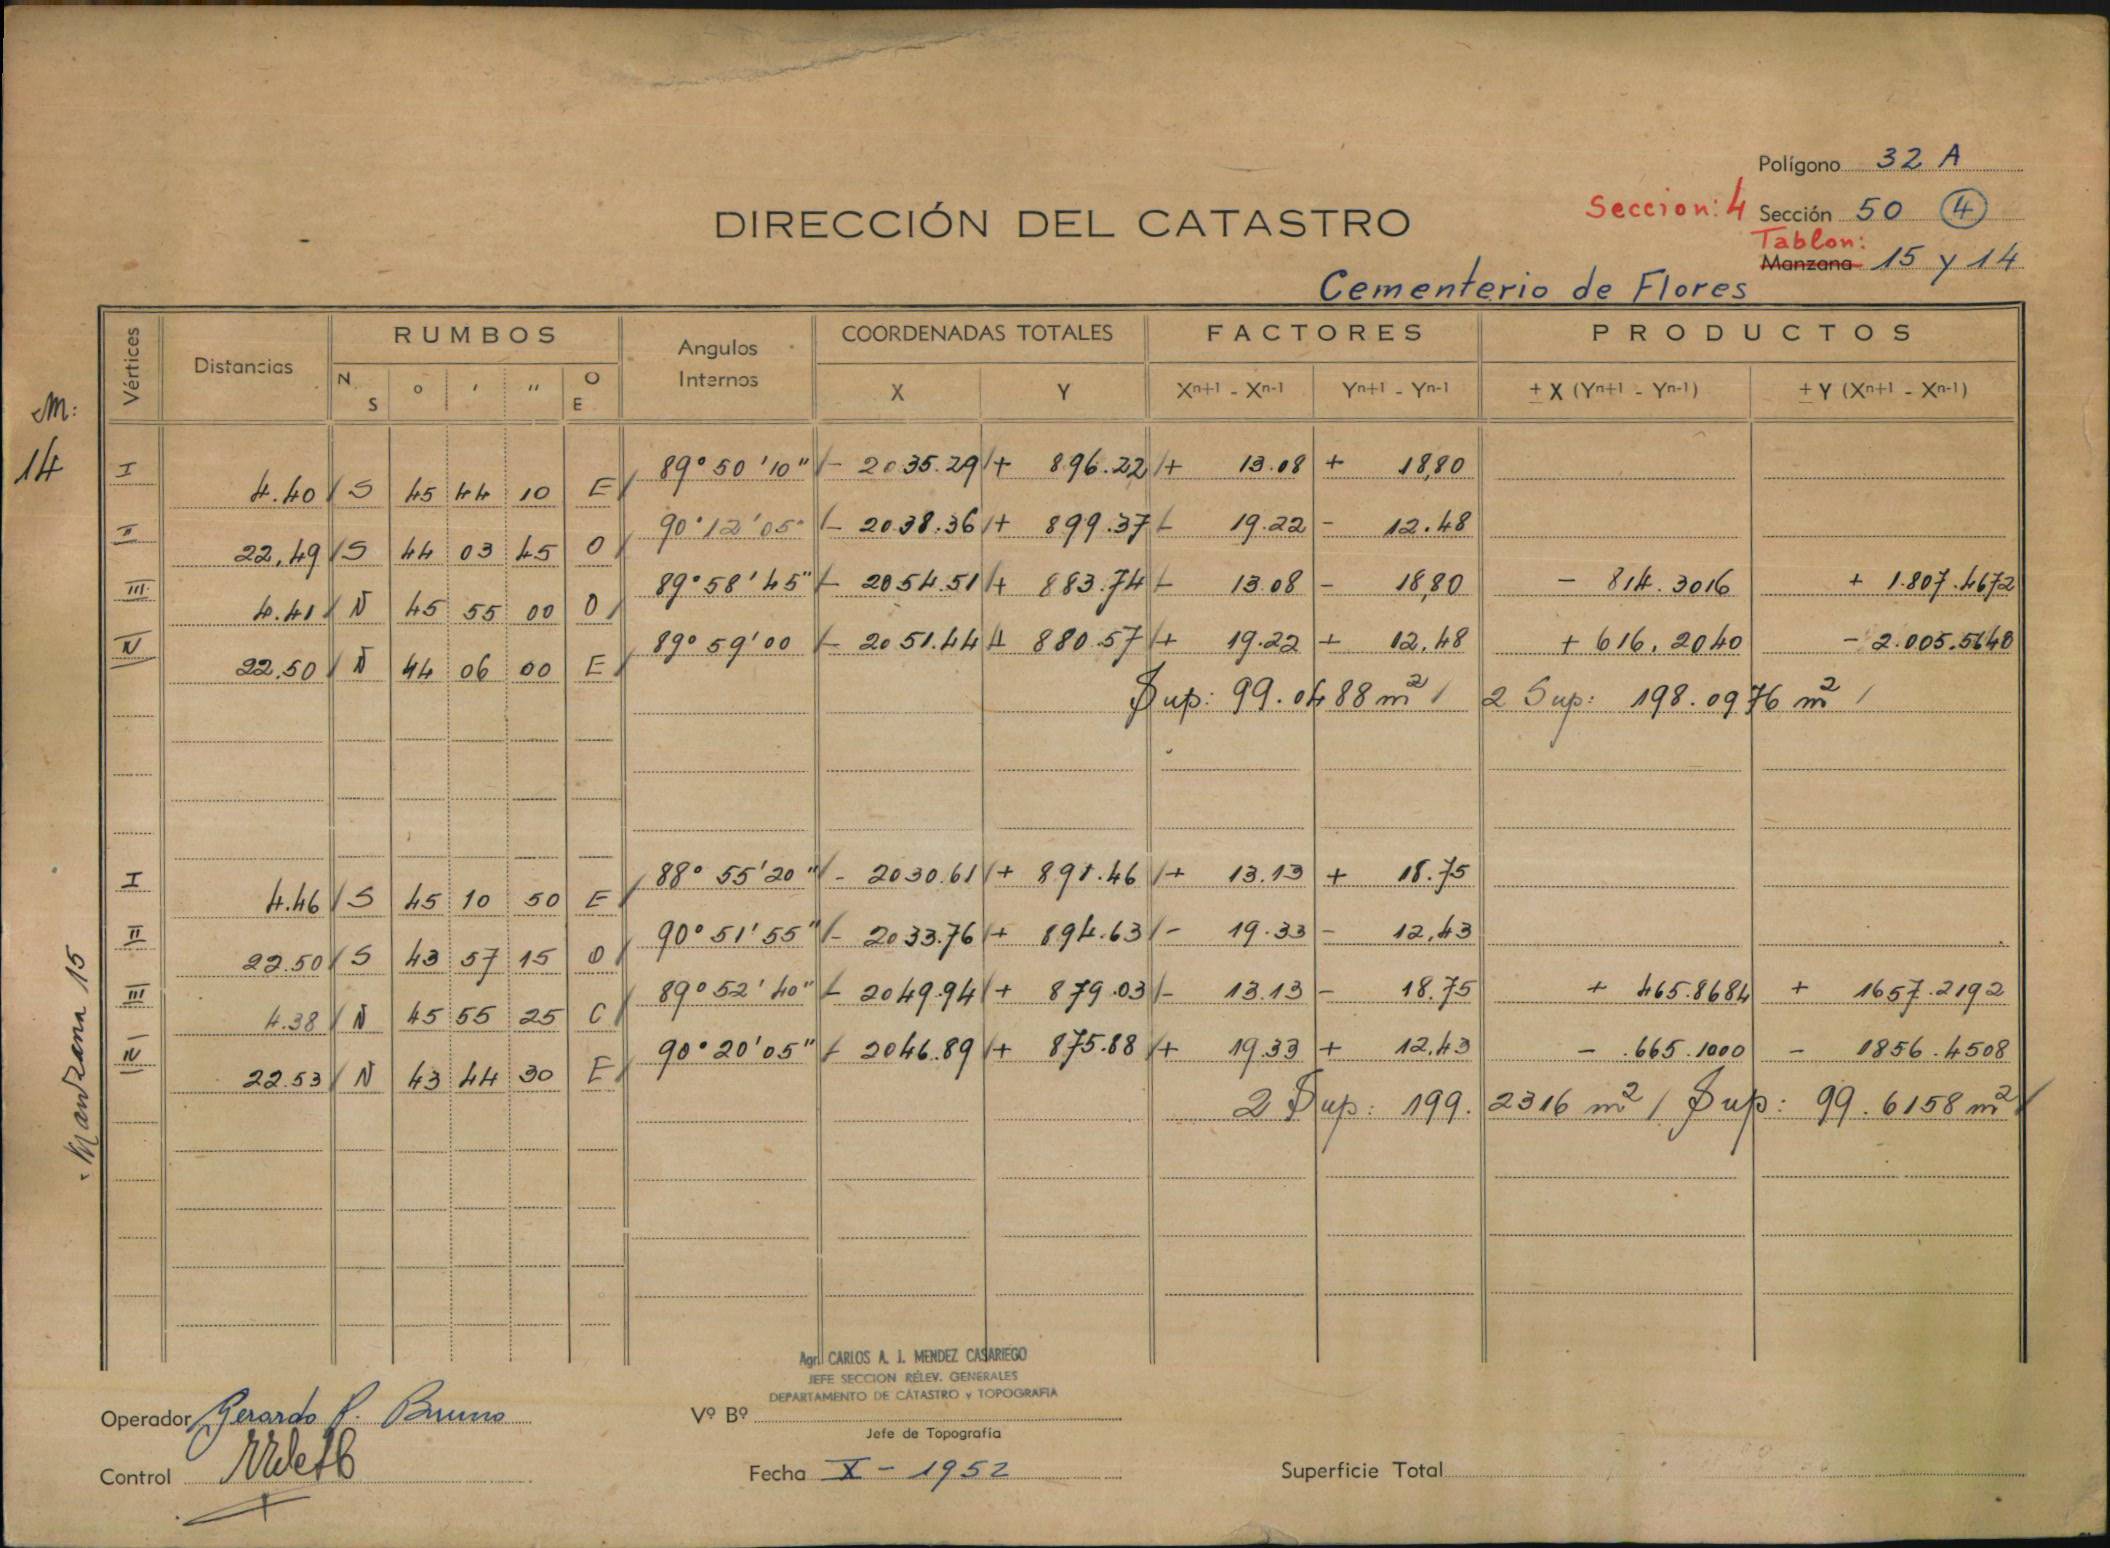 Polígono 32 A
Seccion: 4 Sección 50 4
DIRECCIÓN DEL CATASTRO
Tablon:
Manzana 15 y 14
Cementerio de Flores
Vértices Distancias RUMBOS Angulos Internos COORDENADAS TOTALES FACTORES PRODUCTOS
N S ° ' " O E X Y Xn+1 - Xn-1 Yn+1 - Yn-1 ± X (Yn+1 - Yn-1) ± Y (Xn+1 - Xn-1)
M:
14
I 89° 50' 10" - 2035.29 + 896.22 + 13.08 + 18,80
4.40 S 45 44 10 E
II 90° 12' 05" - 2038.36 + 899.37 - 19.22 - 12.48
22,49 S 44 03 45 O
III 89° 58' 45" - 2054.51 + 883.74 - 13.08 - 18,80 - 814.3016 + 1.807.4672
4.41 N 45 55 00 O
IV 89° 59' 00 - 2051.44 + 880.57 + 19.22 + 12,48 + 616,2040 - 2.005.5648
22.50 N 44 06 00 E
Sup: 99.0488 m² 2 Sup: 198.0976 m²
Manzana 15
I 88° 55' 20" - 2030.61 + 891.46 + 13.13 + 18.75
4.46 S 45 10 50 E
II 90° 51' 55" - 2033.76 + 894.63 - 19.33 - 12,43
22.50 S 43 57 15 O
III 89° 52' 40" - 2049.94 + 879.03 - 13.13 - 18.75 + 465.8684 + 1657.2192
4.38 N 45 55 25 O
IV 90° 20' 05" - 2046.89 + 875.88 + 19.33 + 12.43 - .665.1000 - 1856.4508
22.53 N 43 44 30 E
2 Sup: 199.2316 m² Sup: 99.6158 m²
Agr. CARLOS A. J. MENDEZ CASARIEGO
JEFE SECCION RELEV. GENERALES
DEPARTAMENTO DE CATASTRO y TOPOGRAFIA
Operador Gerardo P. Bruno
Vº Bº
Jefe de Topografía
Control
Fecha X - 1952
Superficie Total